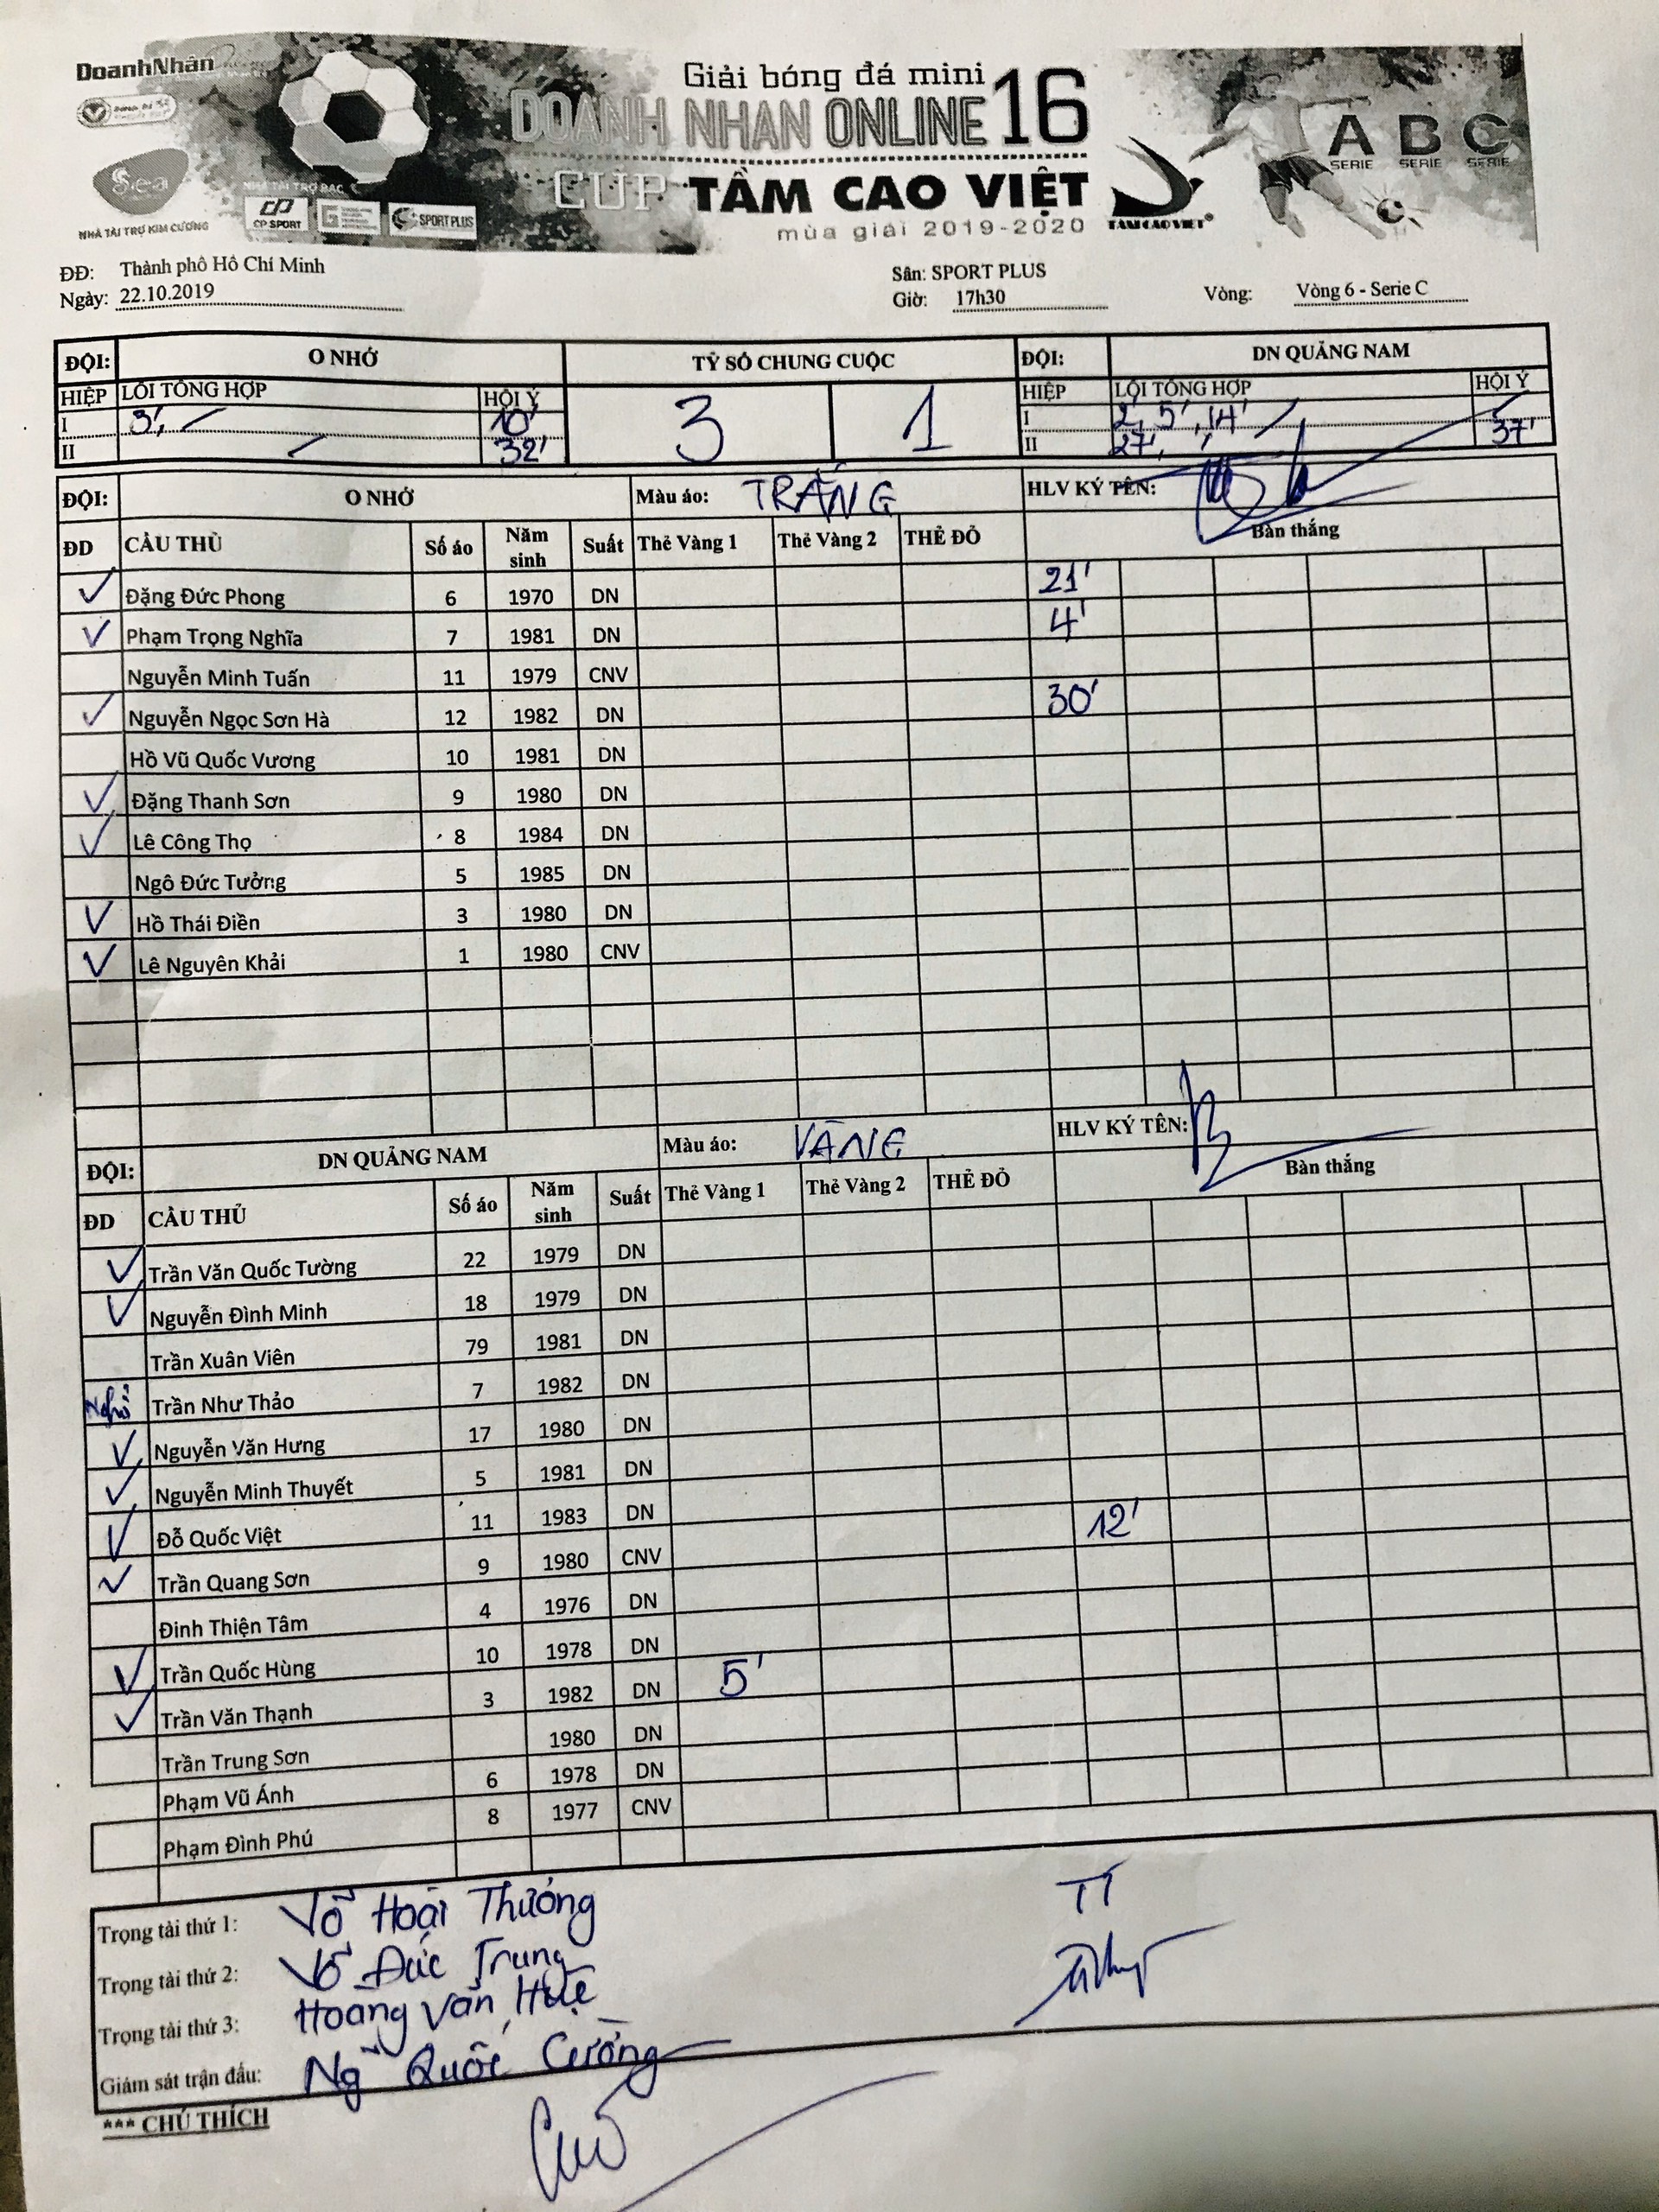 DoanhNhân
Giải bóng đá mini
DOANH NHAN ONLINE 16
CUP TẦM CAO VIỆT
mùa giải 2019-2020
TẦM CAO VIỆT
A B C
SERIE SERIE SERIE
Sea
NHÀ TÀI TRỢ KIM CƯƠNG
NHÀ TÀI TRỢ BẠC
CP SPORT
SPORT PLUS
ĐĐ: Thành phố Hồ Chí Minh Sân: SPORT PLUS
Ngày: 22.10.2019 Giờ: 17h30 Vòng: Vòng 6 - Serie C
ĐỘI: O NHỞ TỶ SỐ CHUNG CUỘC ĐỘI: DN QUẢNG NAM
HIỆP LỖI TỔNG HỢP HỘI Ý 3 1 HIỆP LỖI TỔNG HỢP HỘI Ý
I 3', 10' I 2', 5', 14'
II 32' II 27', 37'
ĐỘI: O NHỞ Màu áo: TRẮNG HLV KÝ TÊN:
ĐD CẦU THỦ Số áo Năm sinh Suất Thẻ Vàng 1 Thẻ Vàng 2 THẺ ĐỎ Bàn thắng
Đặng Đức Phong 6 1970 DN 21'
Phạm Trọng Nghĩa 7 1981 DN 4'
Nguyễn Minh Tuấn 11 1979 CNV
Nguyễn Ngọc Sơn Hà 12 1982 DN 30'
Hồ Vũ Quốc Vương 10 1981 DN
Đặng Thanh Sơn 9 1980 DN
Lê Công Thọ 8 1984 DN
Ngô Đức Tưởng 5 1985 DN
Hồ Thái Điền 3 1980 DN
Lê Nguyên Khải 1 1980 CNV
ĐỘI: DN QUẢNG NAM Màu áo: VÀNG HLV KÝ TÊN:
ĐD CẦU THỦ Số áo Năm sinh Suất Thẻ Vàng 1 Thẻ Vàng 2 THẺ ĐỎ Bàn thắng
Trần Văn Quốc Tường 22 1979 DN
Nguyễn Đình Minh 18 1979 DN
Trần Xuân Viên 79 1981 DN
Nghỉ Trần Như Thảo 7 1982 DN
Nguyễn Văn Hưng 17 1980 DN
Nguyễn Minh Thuyết 5 1981 DN
Đỗ Quốc Việt 11 1983 DN 12'
Trần Quang Sơn 9 1980 CNV
Đinh Thiện Tâm 4 1976 DN
Trần Quốc Hùng 10 1978 DN
Trần Văn Thạnh 3 1982 DN 5'
Trần Trung Sơn 1980 DN
Phạm Vũ Ánh 6 1978 DN
Phạm Đình Phú 8 1977 CNV
Trọng tài thứ 1: Võ Hoài Thưởng TT
Trọng tài thứ 2: Võ Đức Trung
Trọng tài thứ 3: Hoàng Văn Huệ
Giám sát trận đấu: Ng Quốc Cường
*** CHÚ THÍCH